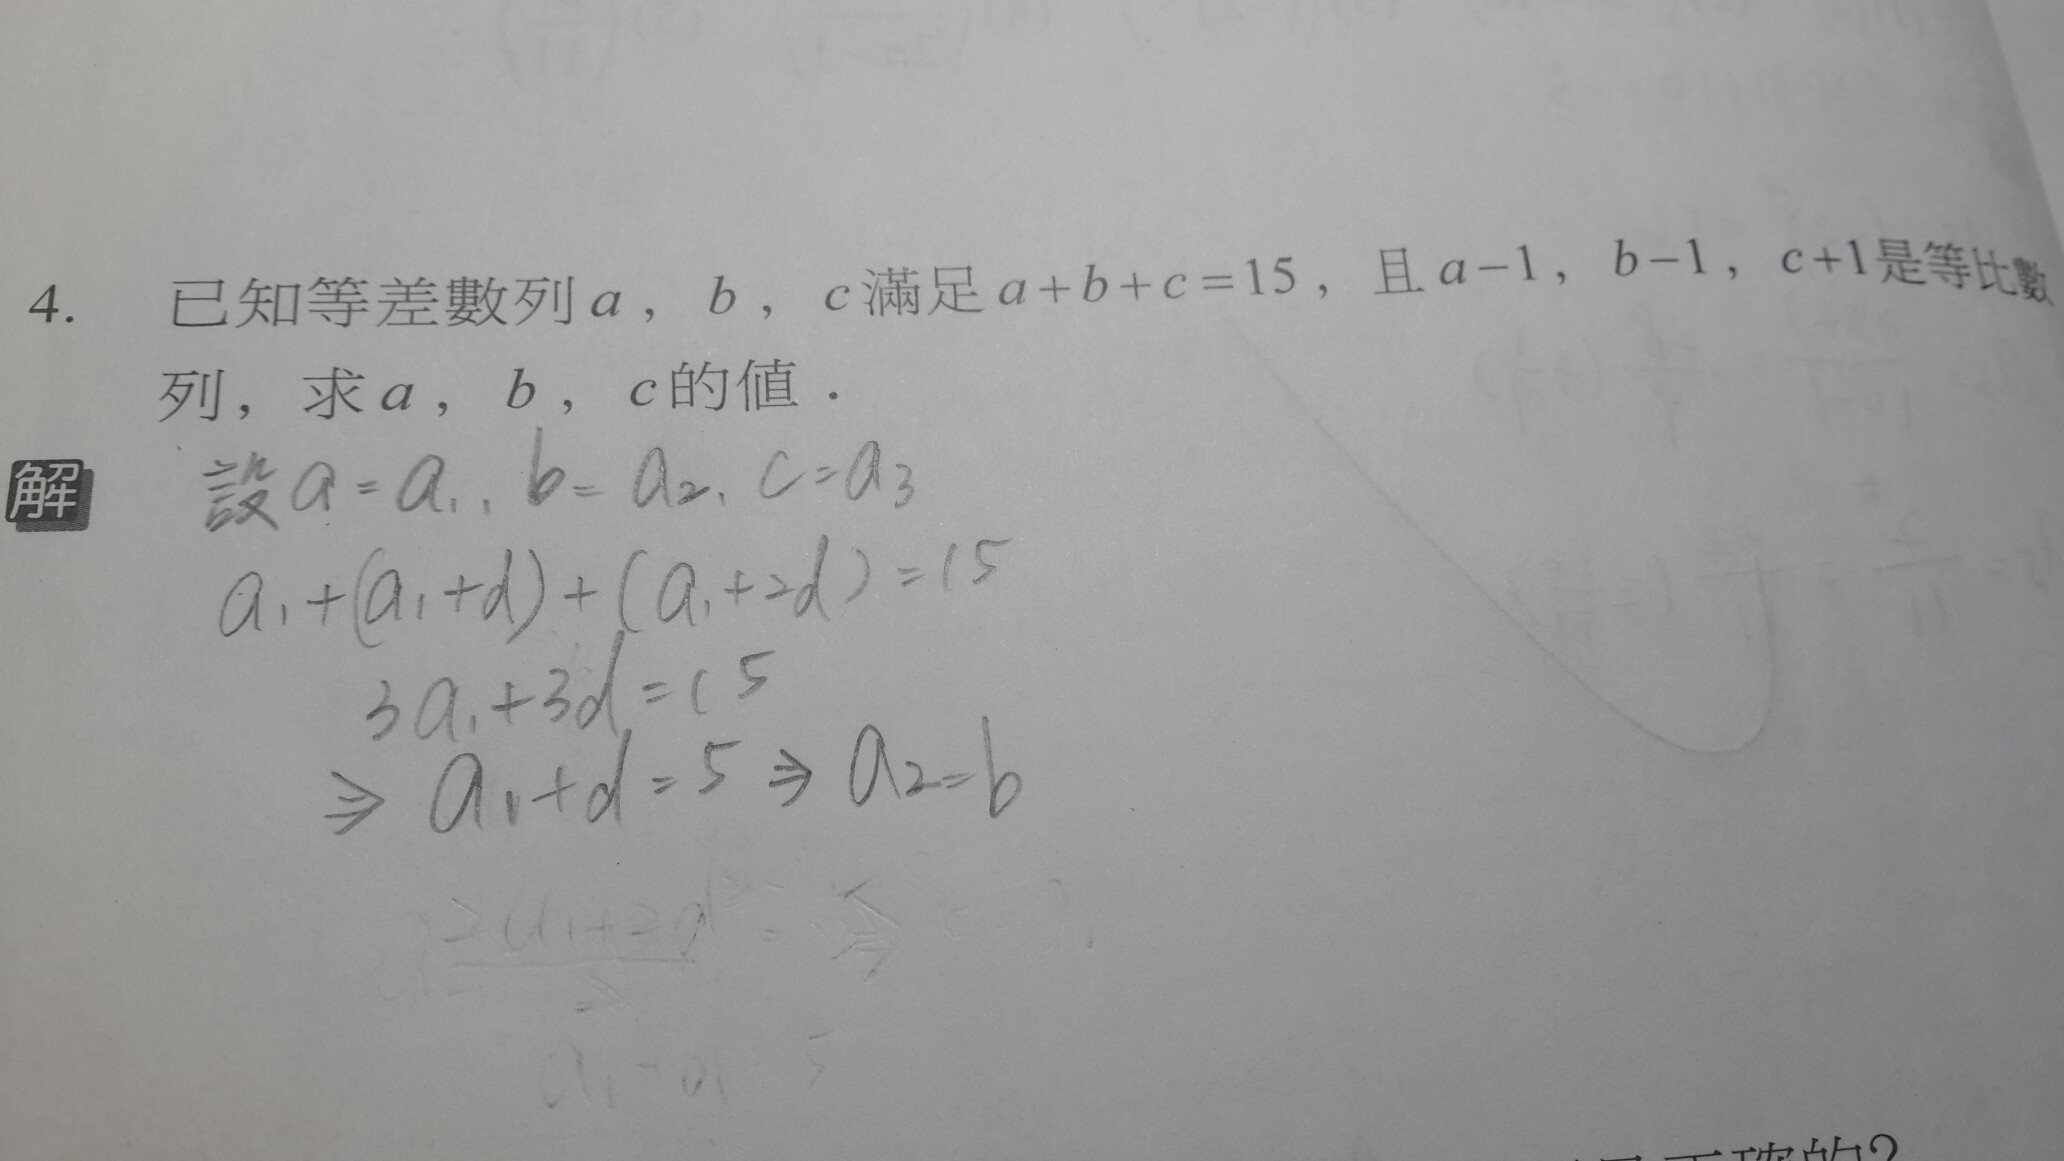 4. 已知等差數列a，b，c滿足a+b+c=15，且a−1，b−1，c+1是等比數
列，求a，b，c的值．
解 設a=a₁, b=a₂, c=a₃
a₁+(a₁+d)+(a₁+2d)=15
3a₁+3d=15
⇒ a₁+d=5 ⇒ a₂=b
正確的?